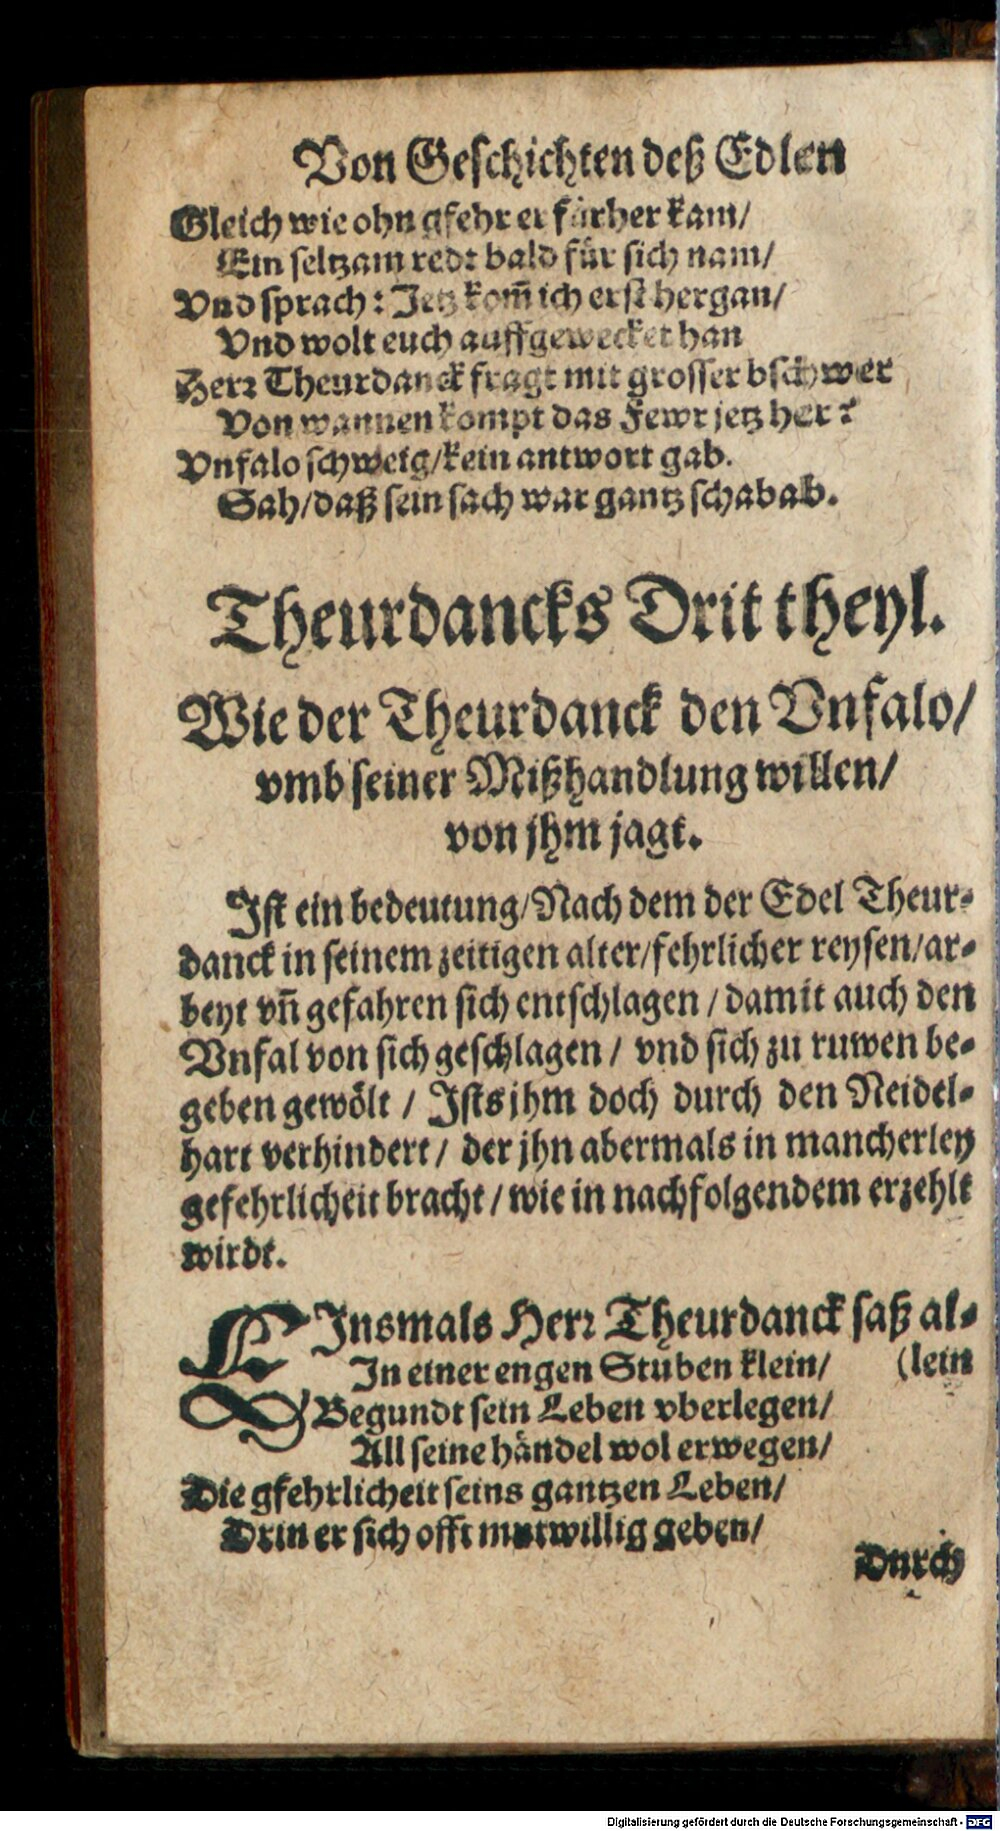 Von Geſchichten deß Edlen
Gleich wie ohn gfehr er fürher kam/
Ein ſeltzam redt bald für ſich nam/
Vnd ſprach: Jetz kom̃ ich erſt hergan/
Vnd wolt euch auffgewecket han
Herꝛ Theurdanck fragt mit groſſer bſchwer
Von wannen kompt das Fewr jetz her?
Vnfalo ſchweig/kein antwort gab.
Sah/daß ſein ſach war gantz ſchabab.
Theurdancks Drit theyl.
Wie der Theurdanck den Vnfalo/
vmb ſeiner Mißhandlung willen/
von jhm jagt.
Iſt ein bedeutung/Nach dem der Edel Theur-
danck in ſeinem zeitigen alter/fehrlicher reyſen/ar-
beyt vñ gefahren ſich entſchlagen/damit auch den
Vnfal von ſich geſchlagen/ vnd ſich zu ruwen be-
geben gewölt/ Iſts jhm doch durch den Neidel-
hart verhindert/ der jhn abermals in mancherley
gefehrlicheit bracht/wie in nachfolgendem erzehlt
wirdt.
EInsmals Herꝛ Theurdanck ſaß al-
In einer engen Stuben klein/ (lein
Begundt ſein Leben vberlegen/
All ſeine händel wol erwegen/
Die gfehrlicheit ſeins gantzen Leben/
Drin er ſich offt mutwillig geben/
Durch
Digitalisierung gefördert durch die Deutsche Forschungsgemeinschaft - DFG